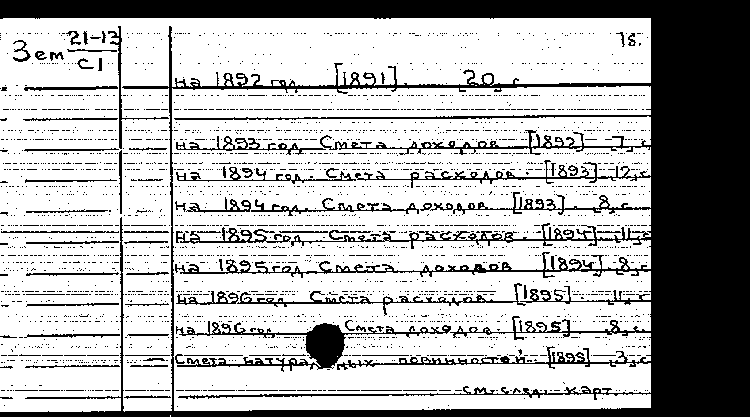 Зем 21-13 18.
С1
на 1892 год [1891]. 20 с
на 1893 год. Смета доходов [1892] 7, с
на 1894 год. Смета расходов. [1893] 12, с
на 1894 год. Смета доходов. [1893]. 8, с
на 1895 год. Смета расходов. [1894]. 11, с
на 1895 год Смета доходов [1894] 8, с
на 1896 год. Смета расходов. [1895] 11, с
на 1896 год Смета доходов. [1895] 8, с
Смета натуральных повинностей. [1895] 3, с
см. след. карт.